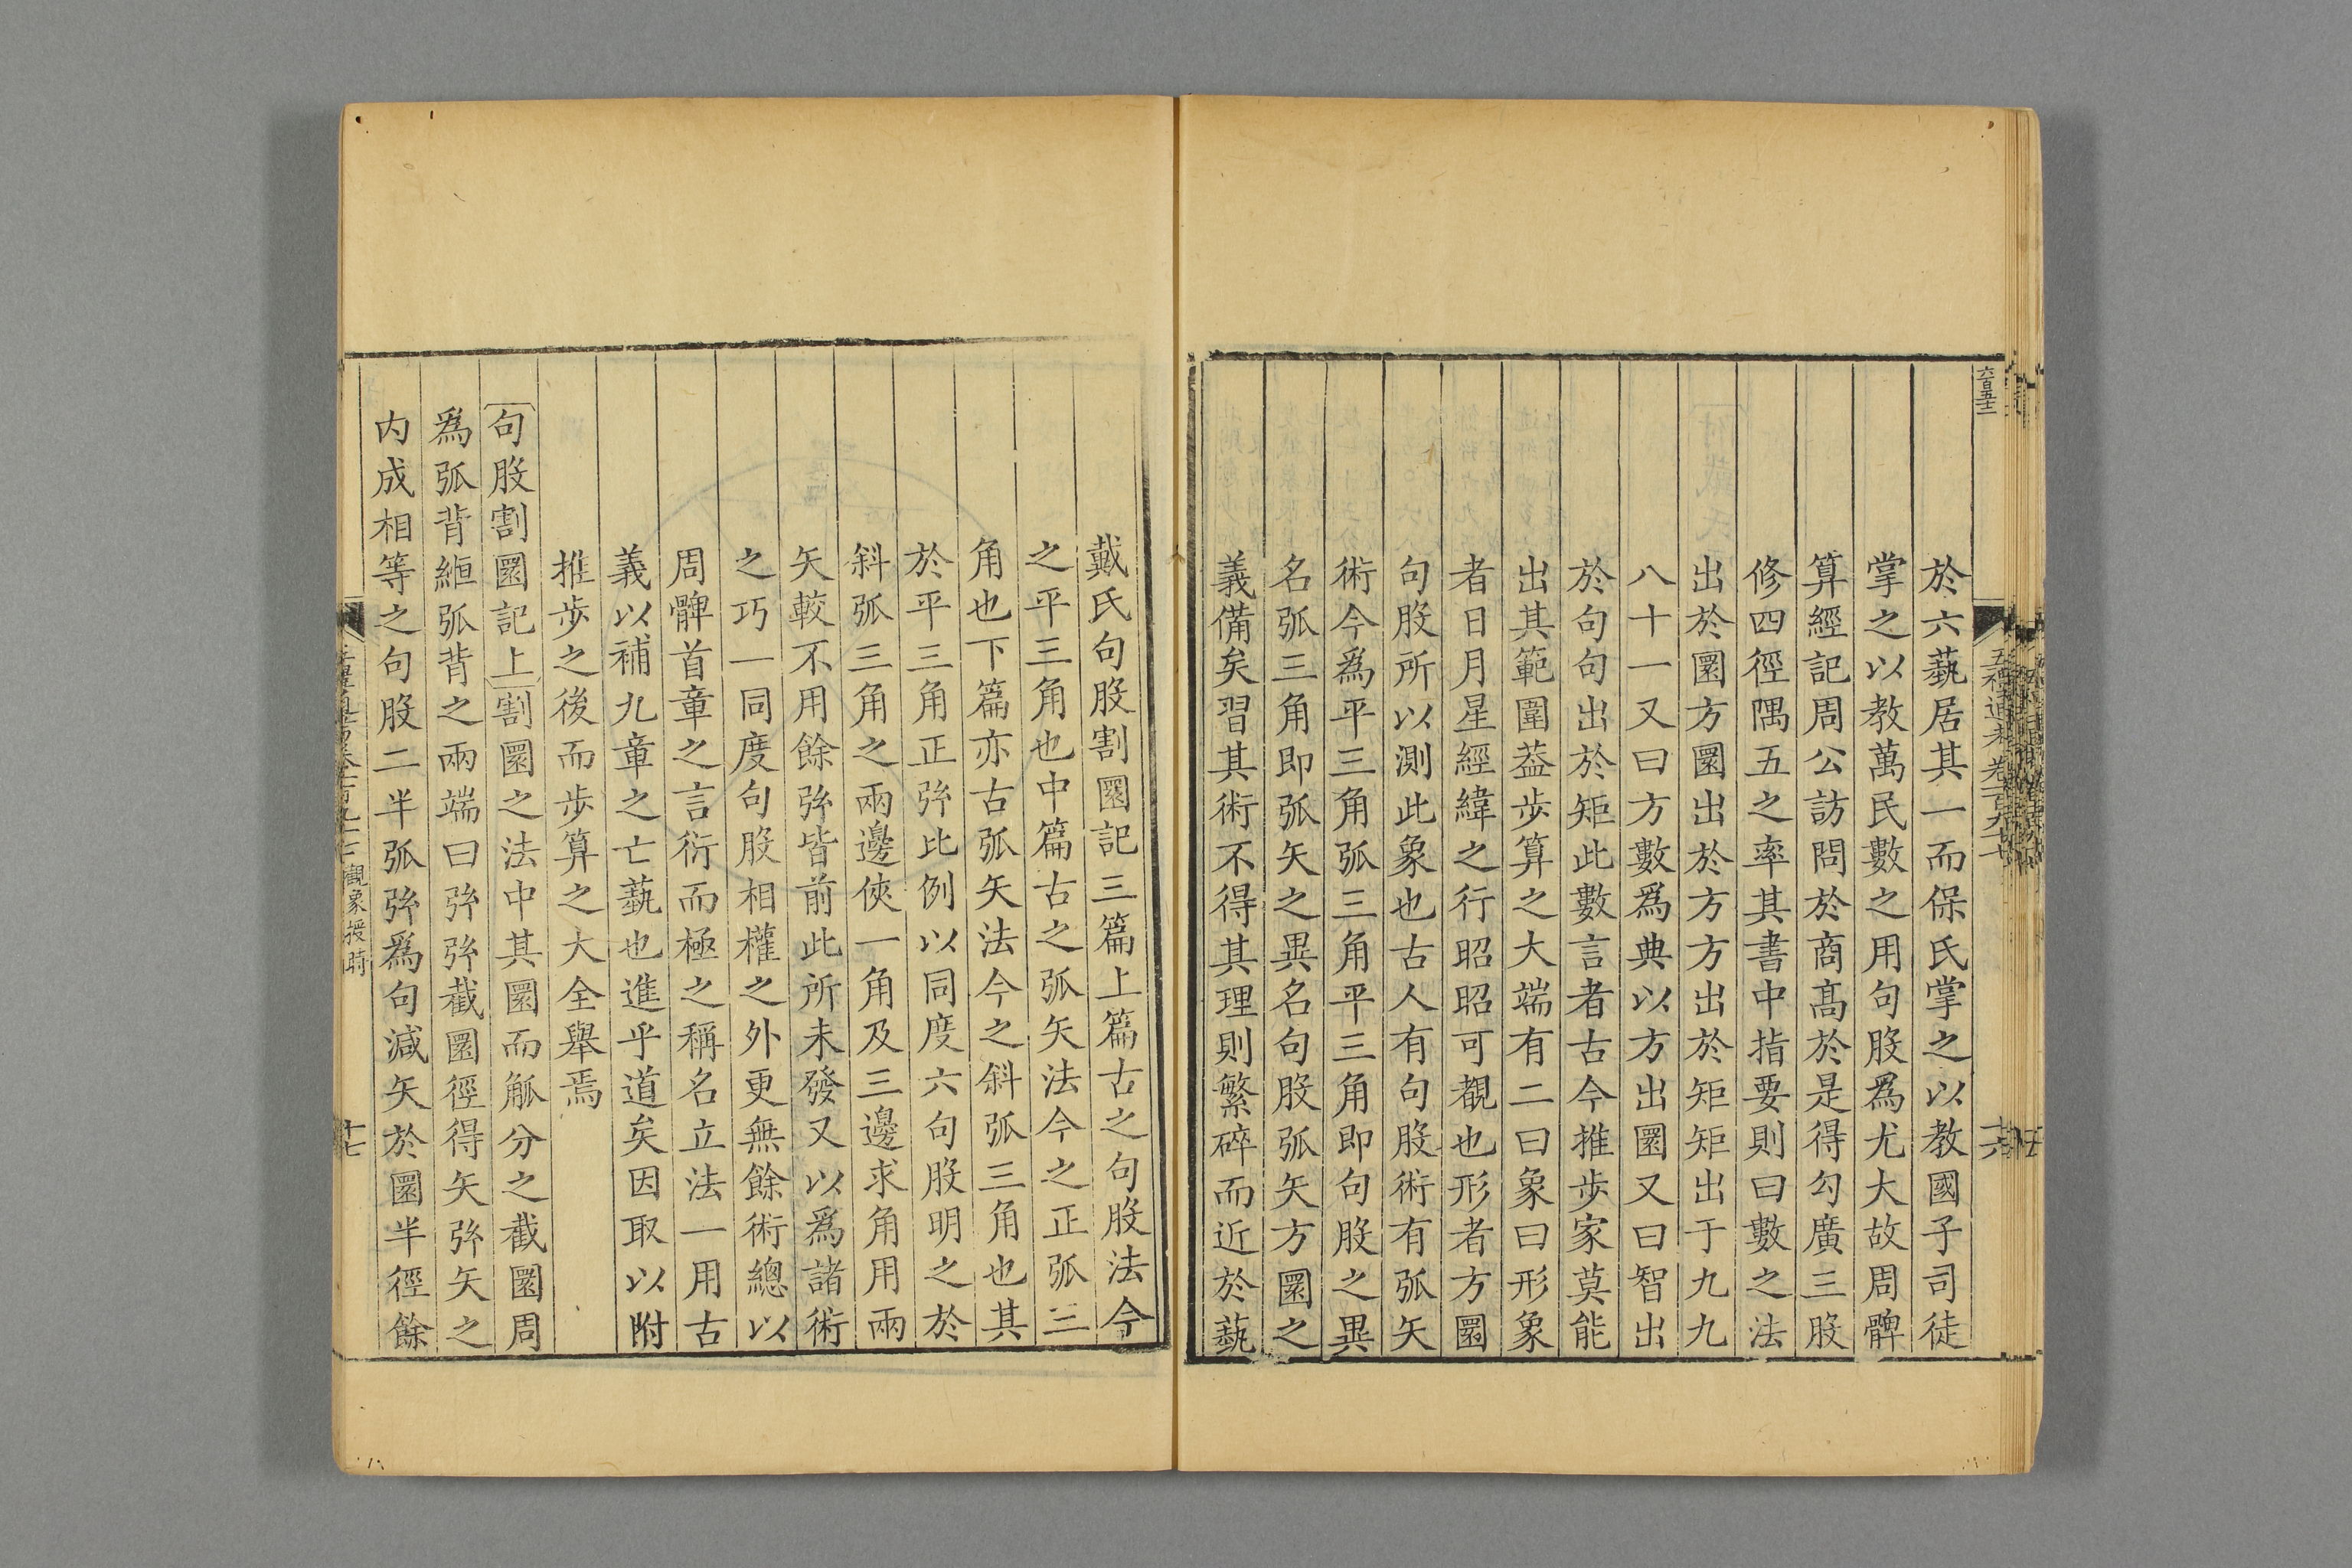 六百五十二
於六藝居其一而保氏掌之以教國子司徒
掌之以教萬民數之用句股爲尤大故周髀
算經記周公訪問於商髙於是得勾廣三股
修四徑隅五之率其書中指要則曰數之法
出於圜方圜出於方方出於矩矩出于九九
八十一又曰方數爲典以方出圜又曰智出
於句句出於矩此數言者古今推歩家莫能
出其範圍葢歩算之大端有二曰象曰形象
者日月星經緯之行昭昭可覩也形者方圜
句股所以測此象也古人有句股術有弧矢
術今爲平三角弧三角平三角即句股之異
名弧三角即弧矢之異名句股弧矢方圜之
義備矣習其術不得其理則繁碎而近於藝
戴氏句股割圜記三篇上篇古之句股法今
之平三角也中篇古之弧矢法今之正弧三
角也下篇亦古弧矢法今之斜弧三角也其
於平三角正弦比例以同度六句股明之於
斜弧三角之兩邊俠一角及三邊求角用兩
矢較不用餘弦皆前此所未發又以爲諸術
之巧一同度句股相權之外更無餘術總以
周髀首章之言衍而極之稱名立法一用古
義以補九章之亡藝也進乎道矣因取以附
推歩之後而歩算之大全舉焉
句股割圜記上割圜之法中其圜而觚分之截圜周
爲弧背縆弧背之兩端曰弦弦截圜徑得矢弦矢之
内成相等之句股二半弧弦爲句減矢於圜半徑餘
觀象授時
十七